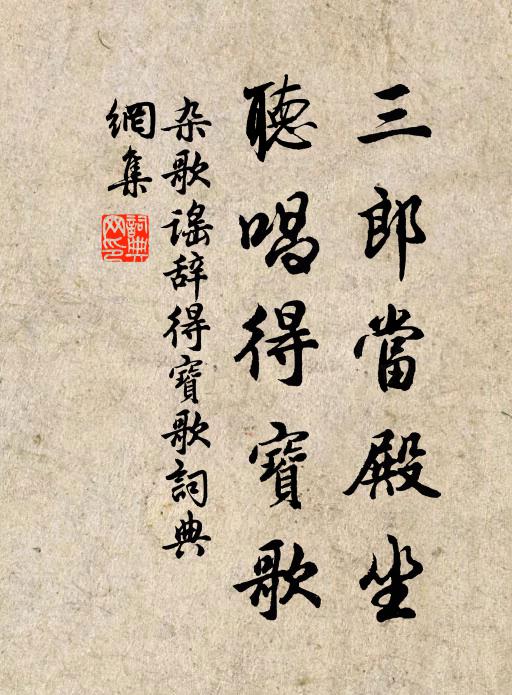 三郎當殿坐
聽唱得寶歌
杂歌謠辞得寶歌詞典
網集
詞典
网印